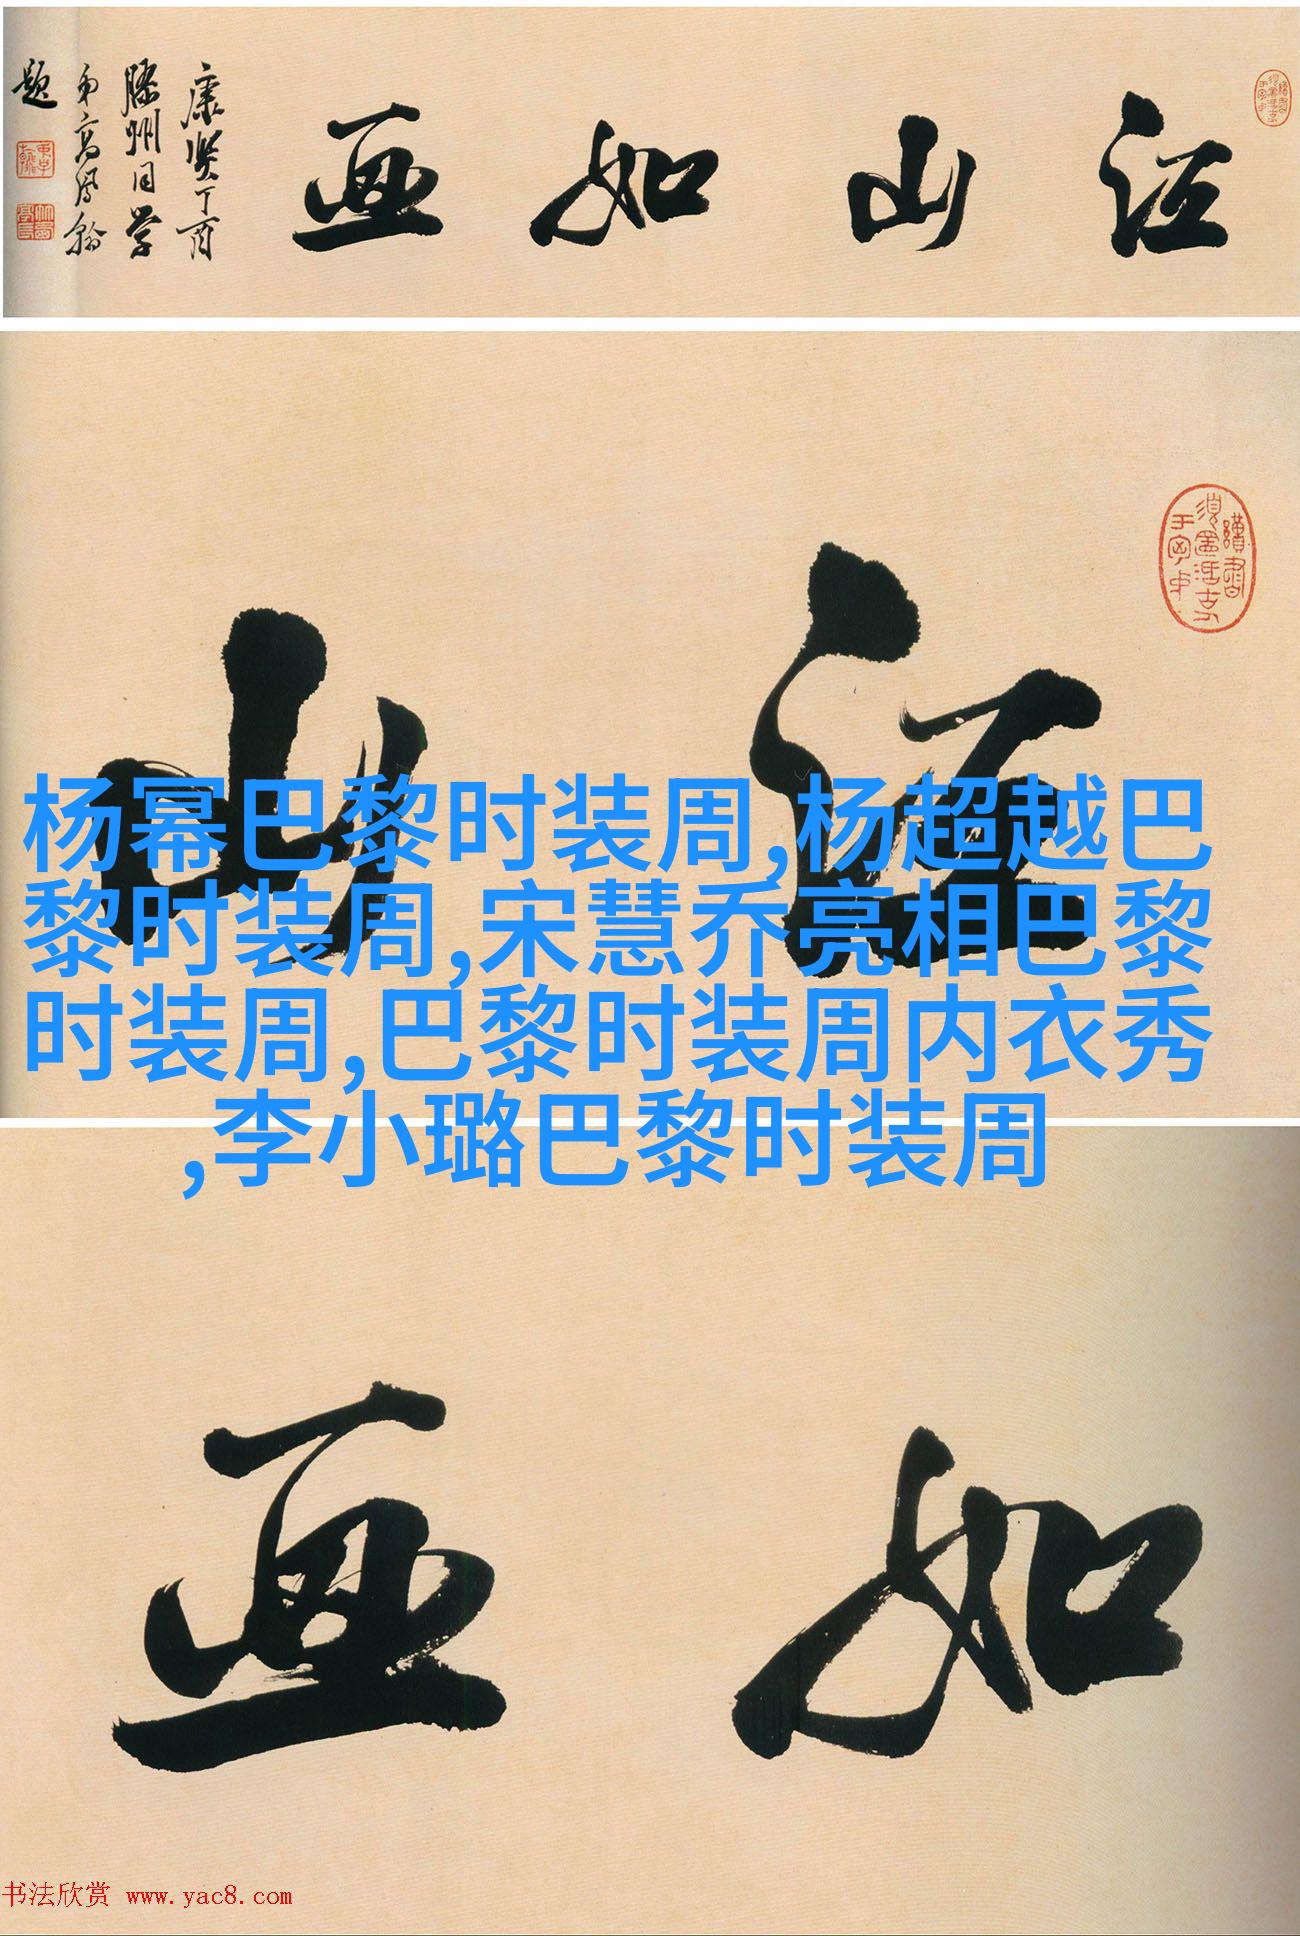 江山如画
康熙丁酉
滕州同学
弟高凤翰
题
江山
杨幂巴黎时装周,杨超越巴
黎时装周,宋慧乔亮相巴黎
时装周,巴黎时装周内衣秀
,李小璐巴黎时装周
如画
书法欣赏 www.yac8.com